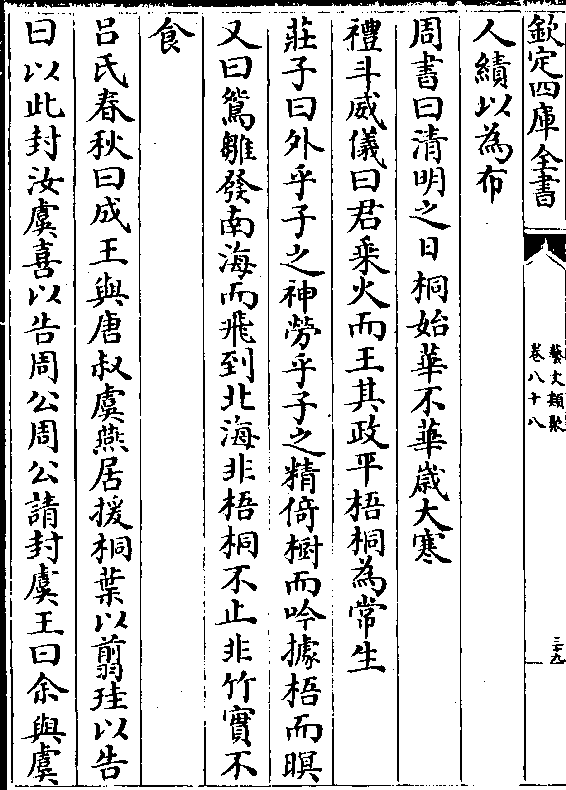 欽定四庫全書
藝文類聚
卷八十八
三十九
人績以為布
周書曰清明之日桐始華不華歲大寒
禮斗威儀曰君乘火而王其政平梧桐為常生
莊子曰外乎子之神勞乎子之精倚樹而吟據梧而暝
又曰鵷雛發南海而飛到北海非梧桐不止非竹實不
食
呂氏春秋曰成王與唐叔虞燕居援桐葉以翦珪以告
曰以此封汝虞喜以告周公周公請封虞王曰余與虞